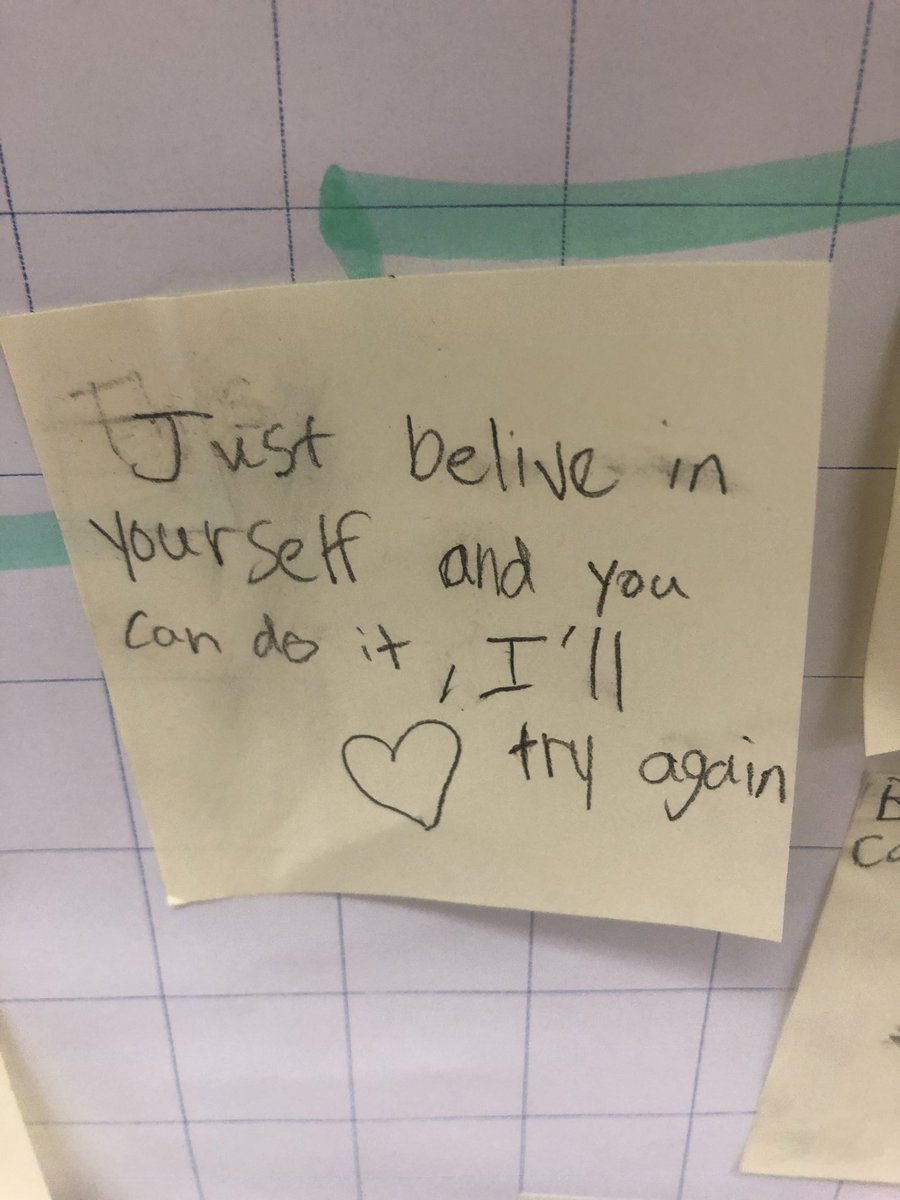 Just belive in
yourself and you
can do it, I'll
try again